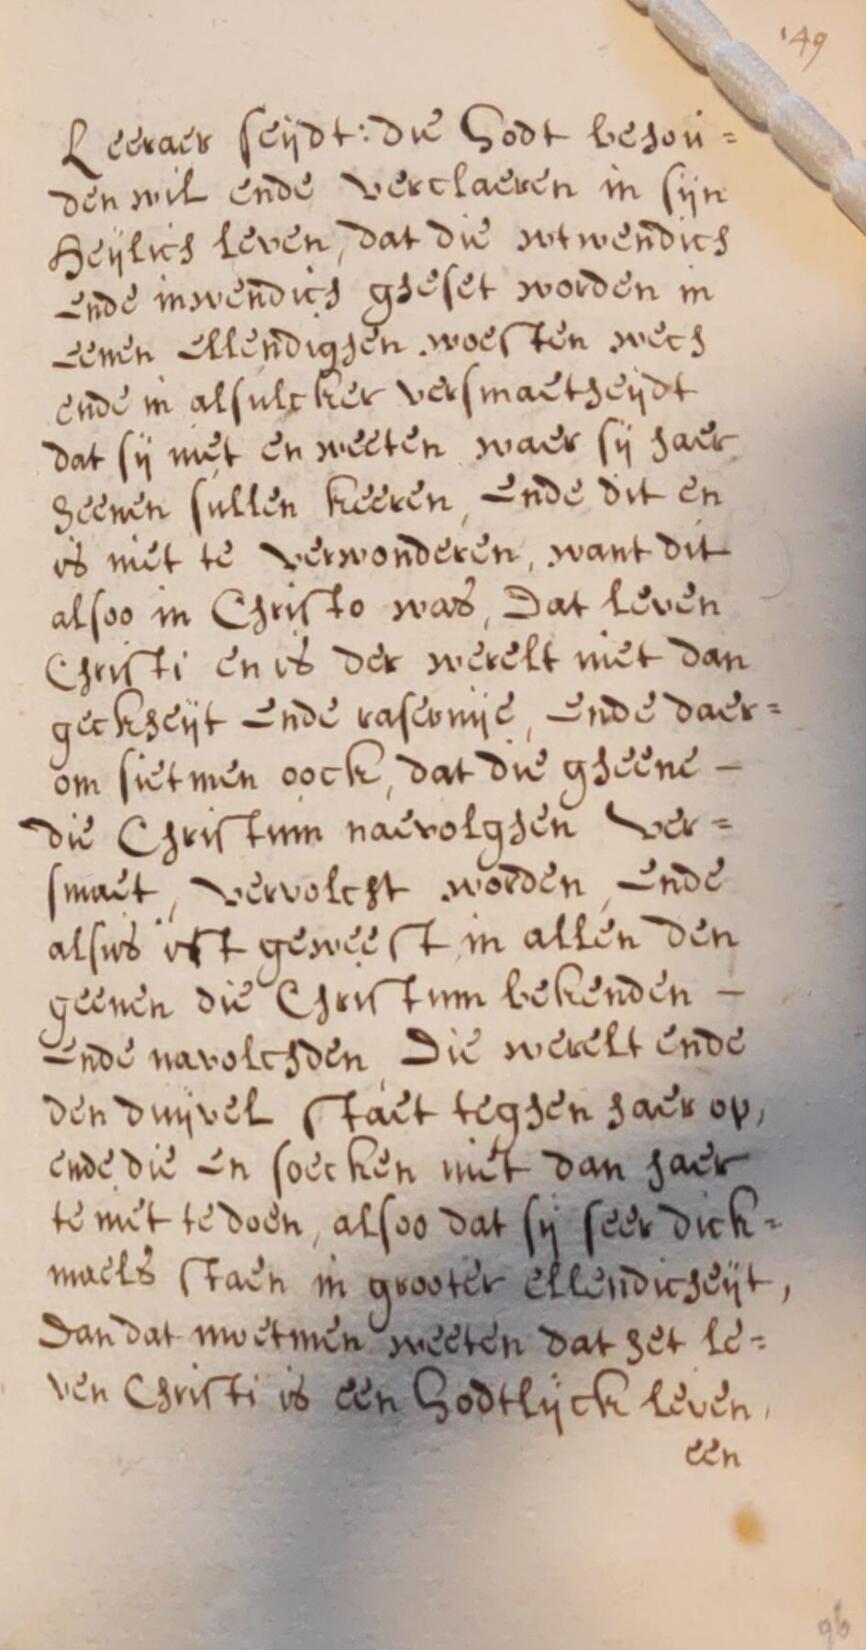 '49
Leeraer seijdt: die Godt behou=
den wil ende verclaeren in sijn
Heijlich leven, dat die wtwendich
ende inwendich gheset worden in
eenen ellendighen woesten wech
ende in alsulcker versmaetheijdt
dat sij niet en weeten waer sij haer
heenen sullen keeren, Ende dit en
is niet te verwonderen, want dit
alsoo in Christo was, Dat leven
Christi en is der werelt niet dan
geckheijt ende rasernije, Ende daer=
om sietmen oock, dat die gheene –
die Christum naevolghen ver=
smaet, vervolcht worden, Ende
alsus ist geweest in allen den
geenen die Christum bekenden –
Ende navolchden, Die werelt ende
den duijvel staet teghen haer op,
ende die en soecken niet dan haer
te niet te doen, alsoo dat sij seer dick=
maels staen in grooter ellendicheijt,
Dan dat moetmen weeten dat het le=
ven Christi is een Godtlijck leven,
een
96